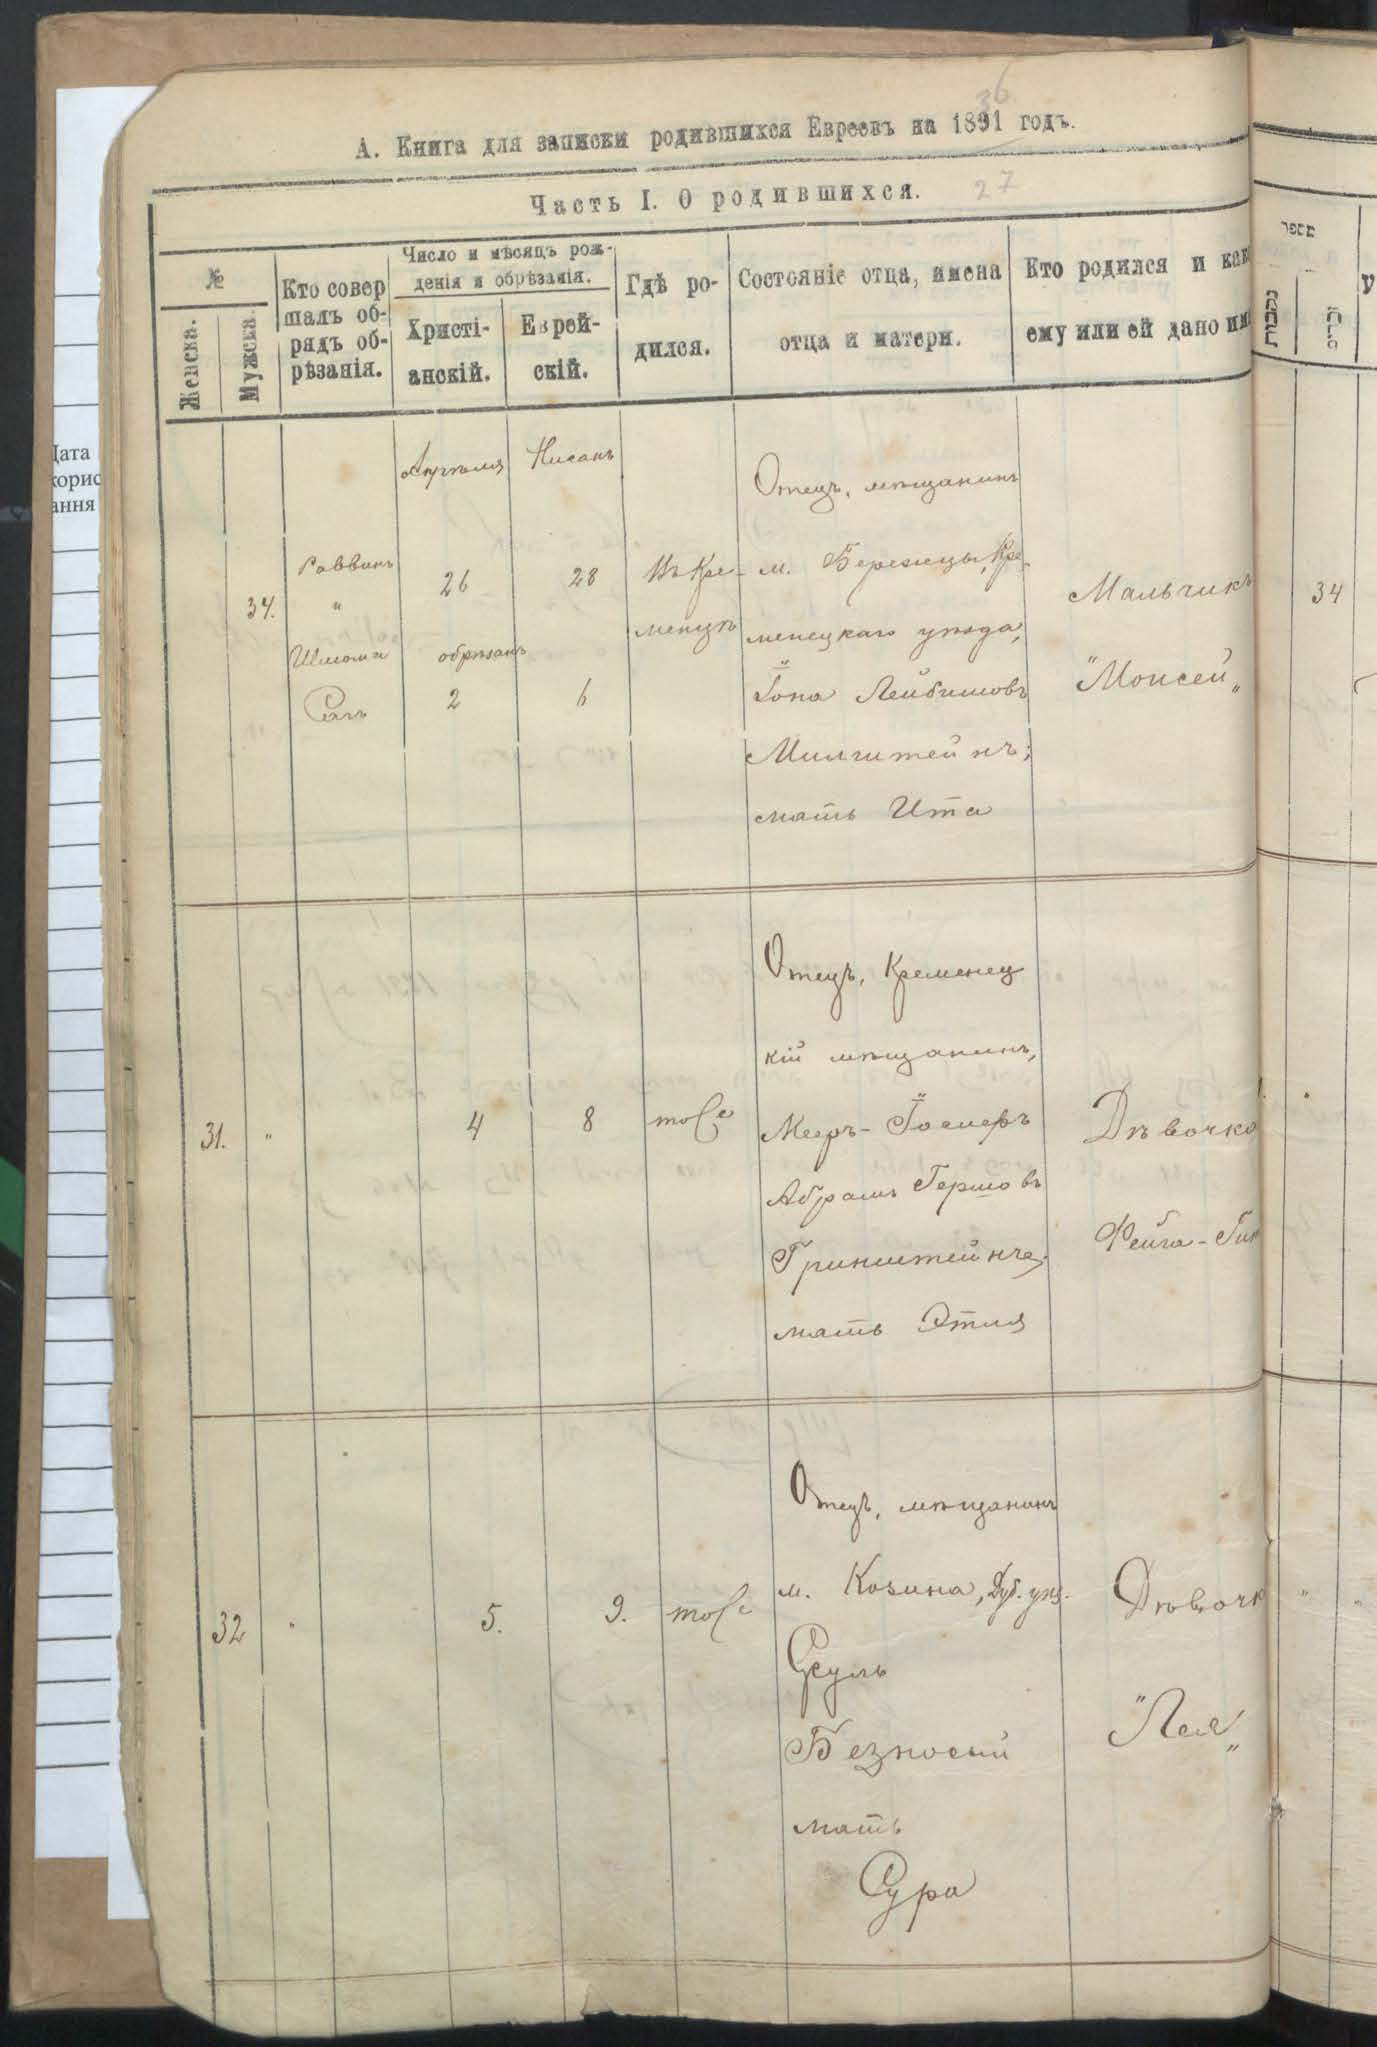 36
А. Книга для записки родившихся Евреевъ на 1891 годъ.
Часть I. О родившихся.
27
№
Женска.
Мужска.
Кто совер
шалъ об-
рядъ об-
рѣзанія.
Число и мѣсяцъ рож-
денія и обрѣзанія.
Христі-
анскій.
Еврей-
скій.
Гдѣ ро-
дился.
Состояніе отца, имена
отца и матери.
Кто родился и как
ему или ей дано им
מספר
נקבות
זכרים
У
Дата
корис
ання
34.
Раввинъ
"
Шлома
Апрѣля
26
обрѣзанъ
2
Нисанъ
28
6
Въ Кре-
менцѣ
Отецъ, мѣщанинъ
м. Бережцы, Кре-
менецкаго уѣзда,
Іона Лейбишовъ
Милштейнъ;
мать Ита
Мальчикъ
"Моисей"
34
31.
"
4
8
тоже
Отецъ, Кременец
кій мѣщанинъ,
Мееръ-Іосифъ
Абрамъ Гершовъ
Гринштейнъ;
мать Этля
Дѣвочка
Фейга-
32
"
5.
9.
тоже
Отецъ, мѣщанинъ
м. Козина, Дуб. уѣз.
Сруль
Безносый
мать
Сура
Дѣвочк
"Лея"
"